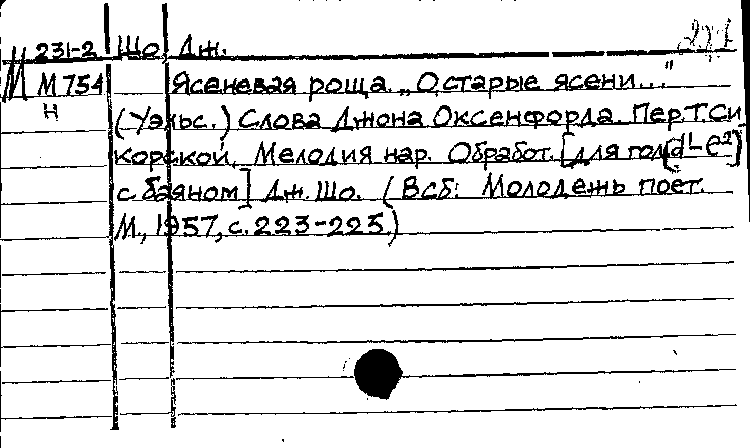 231-2 Шо, Дж.
М М754 Ясеневая роща. „О старые ясени..."
Н (Уэльс.) Слова Джона Оксенфорда. Пер. Т. Си
корской. Мелодия нар. Обработ. [для гол. (d¹-e²)
с баяном] Дж. Шо. (В сб: Молодежь поет.
М., 1957, с. 223-225.)